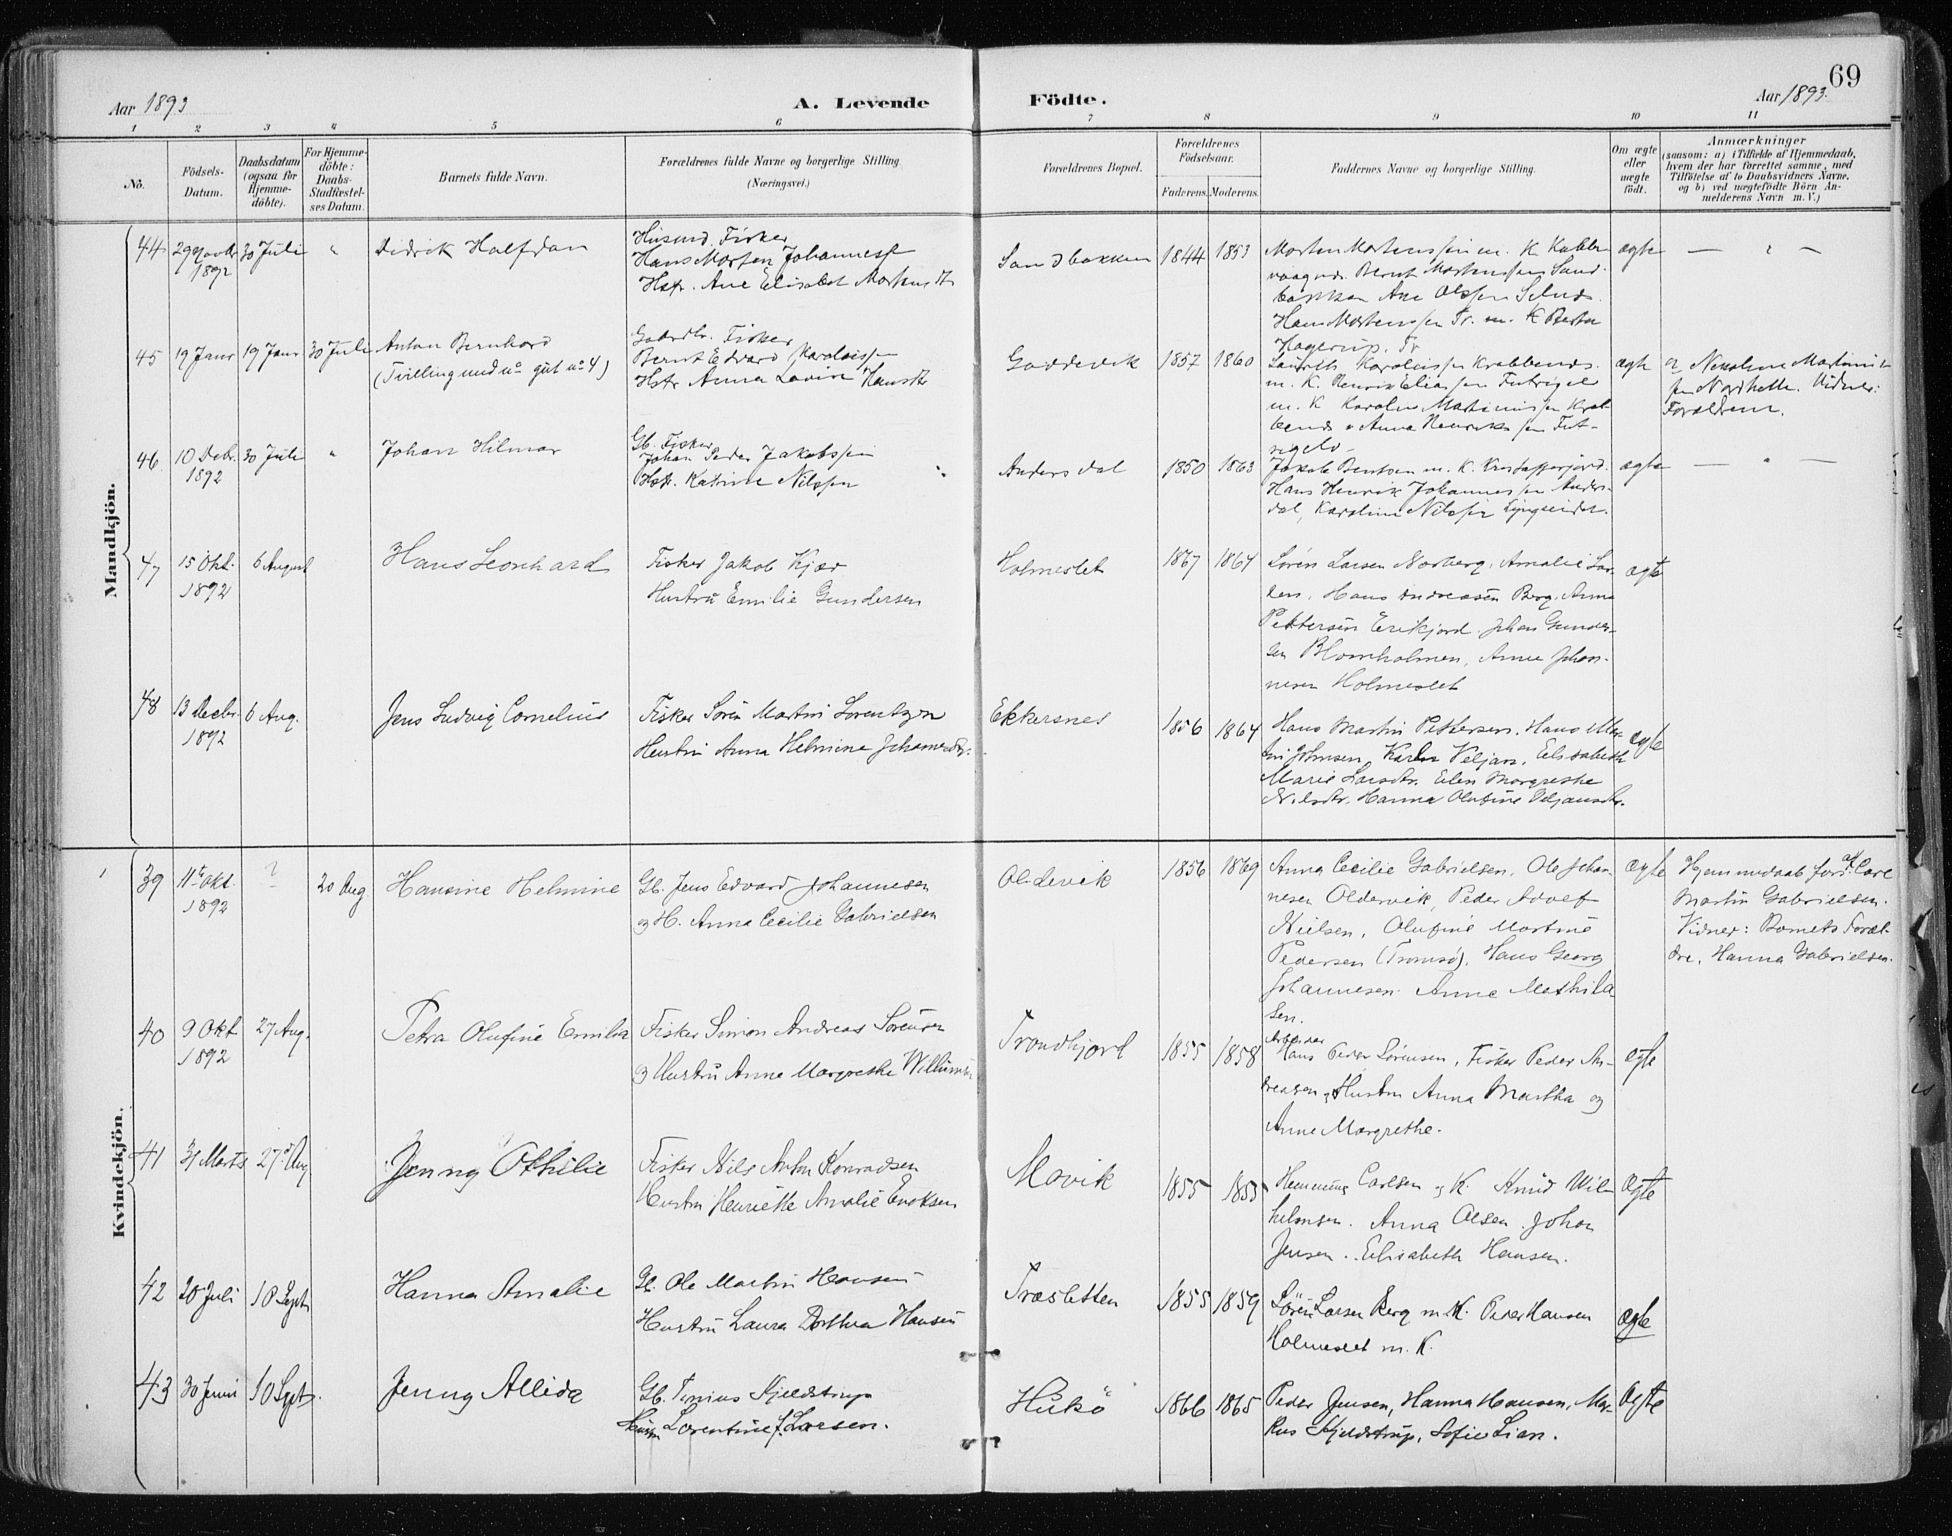 69
Aar 1893
A. Levende Födte.
Aar 1893.
1 2 3 4 5 6 7 8 9 10 11
No.
Födsels-
Datum.
Daabsdatum
(ogsaa for
Hjemme-
döbte).
For Hjemme-
döbte:
Daabs-
Stadfæstel-
ses Datum.
Barnets fulde Navn.
Forældrenes fulde Navne og borgerlige Stilling.
(Næringsvei.)
Forældrenes Bopæl.
Forældrenes
Födselsaar.
Faderens. Moderens.
Faddernes Navne og borgerlige Stilling.
Om ægte
eller
uægte
födt.
Anmærkninger
(saasom: a) i Tilfælde af Hjemmedaab,
hvem der har forrettet samme, med
Tilföielse af to Daabsvidners Navne.
og b) ved uægtefödte Börn An-
melderens Navn m. V.)
Mandkjön.
44 29 Novbr 1892 30 Juli " Didrik Halfdan
Husmd. Fisker
Hans Morten Johanness
Hstr. Ane Elisabet Mortensdtr
Sandbakken 1844 1853
Morten Mortenssen m. K
Bernt Mortenssen Sand-
bakken Ane Olssen
Hans Mortenssen Tr. m. K
Hagerup, Tr
ægte — " —
45 19 Janr 19 Janr 30 Juli Anton Bernhard
(Tvilling med gut no 4)
Gaardbr. Fisker
Bernt Edvard Karolissen
Hstr Anna Lovise Hansdtr
1857 1860
Laurits Karolissen
m. K. Henrik Eliassen
m. K Karolus Martinussen
Anna Henrikssen
ægte
Nordhella. Vidner:
Forældrene.
46 10 Debr. 1892 30 Juli " Johan Hilmar
Gb. Fisker
Johan Peder Jakobssen
Hstr. Katrine Nilssen
Andersdal 1850 1863
Jakob Bentsen m. K.
Hans Henrik Johannessen Anders-
dal, Karoline Nilssen Lyngseidet.
ægte — " —
47 15 Okt. 1892 6 August Hans Leonhard
Fisker Jakob Kjær
Hustru Emilie Gundersen
Holmeslet 1867 1864
Sörén Larsen Norberg, Amalie Lar-
sen, Hans Andreasen Berg, Anna
Pettersen Erikjord, Johan Gunder-
sen Blomholmen, Anne Johan-
nesen Holmeslet
ægte
48 13 Decbr. 1892 6 Aug. Jens Ludvig Cornelius
Fisker Sörén Martin Lorentzen
Hustru Anna Helmine Johannesdtr.
Ekkersnes 1856 1864
Hans Martin Pettersen, Hans Mar-
tin Johnsen, Veljam, Elisabeth
Marie Larsdtr. Elen Margrethe
Nilsdtr. Hanna Olufine Veljamsdtr.
ægte
Kvindekjön.
39 11te Okt. 1892 ? 20 Aug Hansine Helmine
Gb. Jens Edvard Johannesen
og H. Anna Cecilie Gabrielsen
Oldervik 1856 1869
Anna Cecilie Gabrielsen, Ole Johan-
nesen Oldervik, Peder Adolf
Nielsen, Olufine Martine
Pedersen (Tromsö), Hans Georg
Johannesen Anne Mathilda
sen.
ægte
Hjemmedaab forr. af Carl
Martin Gabrielsen.
Vidner: Barnets Foræl-
dre, Hanna Gabrielsen.
40 9 Okt 1892 27 Aug. Petra Olufine Emilia
Fisker Simon Andreas Sörensen
og Hustru Anne Margrethe Willumsen
Trondhjord 1855 1858
Arbeider
Hans Peder Sörensen, Fisker Peder An-
dreasen, og Hustru Anna Martha og
Anne Margrethe.
ægte
41 31 Marts 27 Aug Jenny Othilie
Fisker Nils Anton Konradsen
Hustru Henriette Amalie Enoksen
Movik 1855 1855
Henning Carlsen og K. Knud Wil-
helmsen. Anna Olsen. Johan
Jensen. Elisabeth Hansen.
ægte
42 20 Juli 10 Sept Hanna Amalie
Gb. Ole Martin Hansen
Hustru Laura Dorthea Hansen
Træsletten 1855 1859
Sören Larsen Berg m. K. Peder Hansen
Holmeslet m. K.
ægte
43 30 Juni 10 Sept. Jenny Allida
Gb. Tonius Kjeldstrup
Hustru Lorentine f. Larsen.
Hukö 1866 1865
Peder Jensen, Hanna Hansen, Mar-
kus Kjeldstrup, Sofie Lian.
ægte